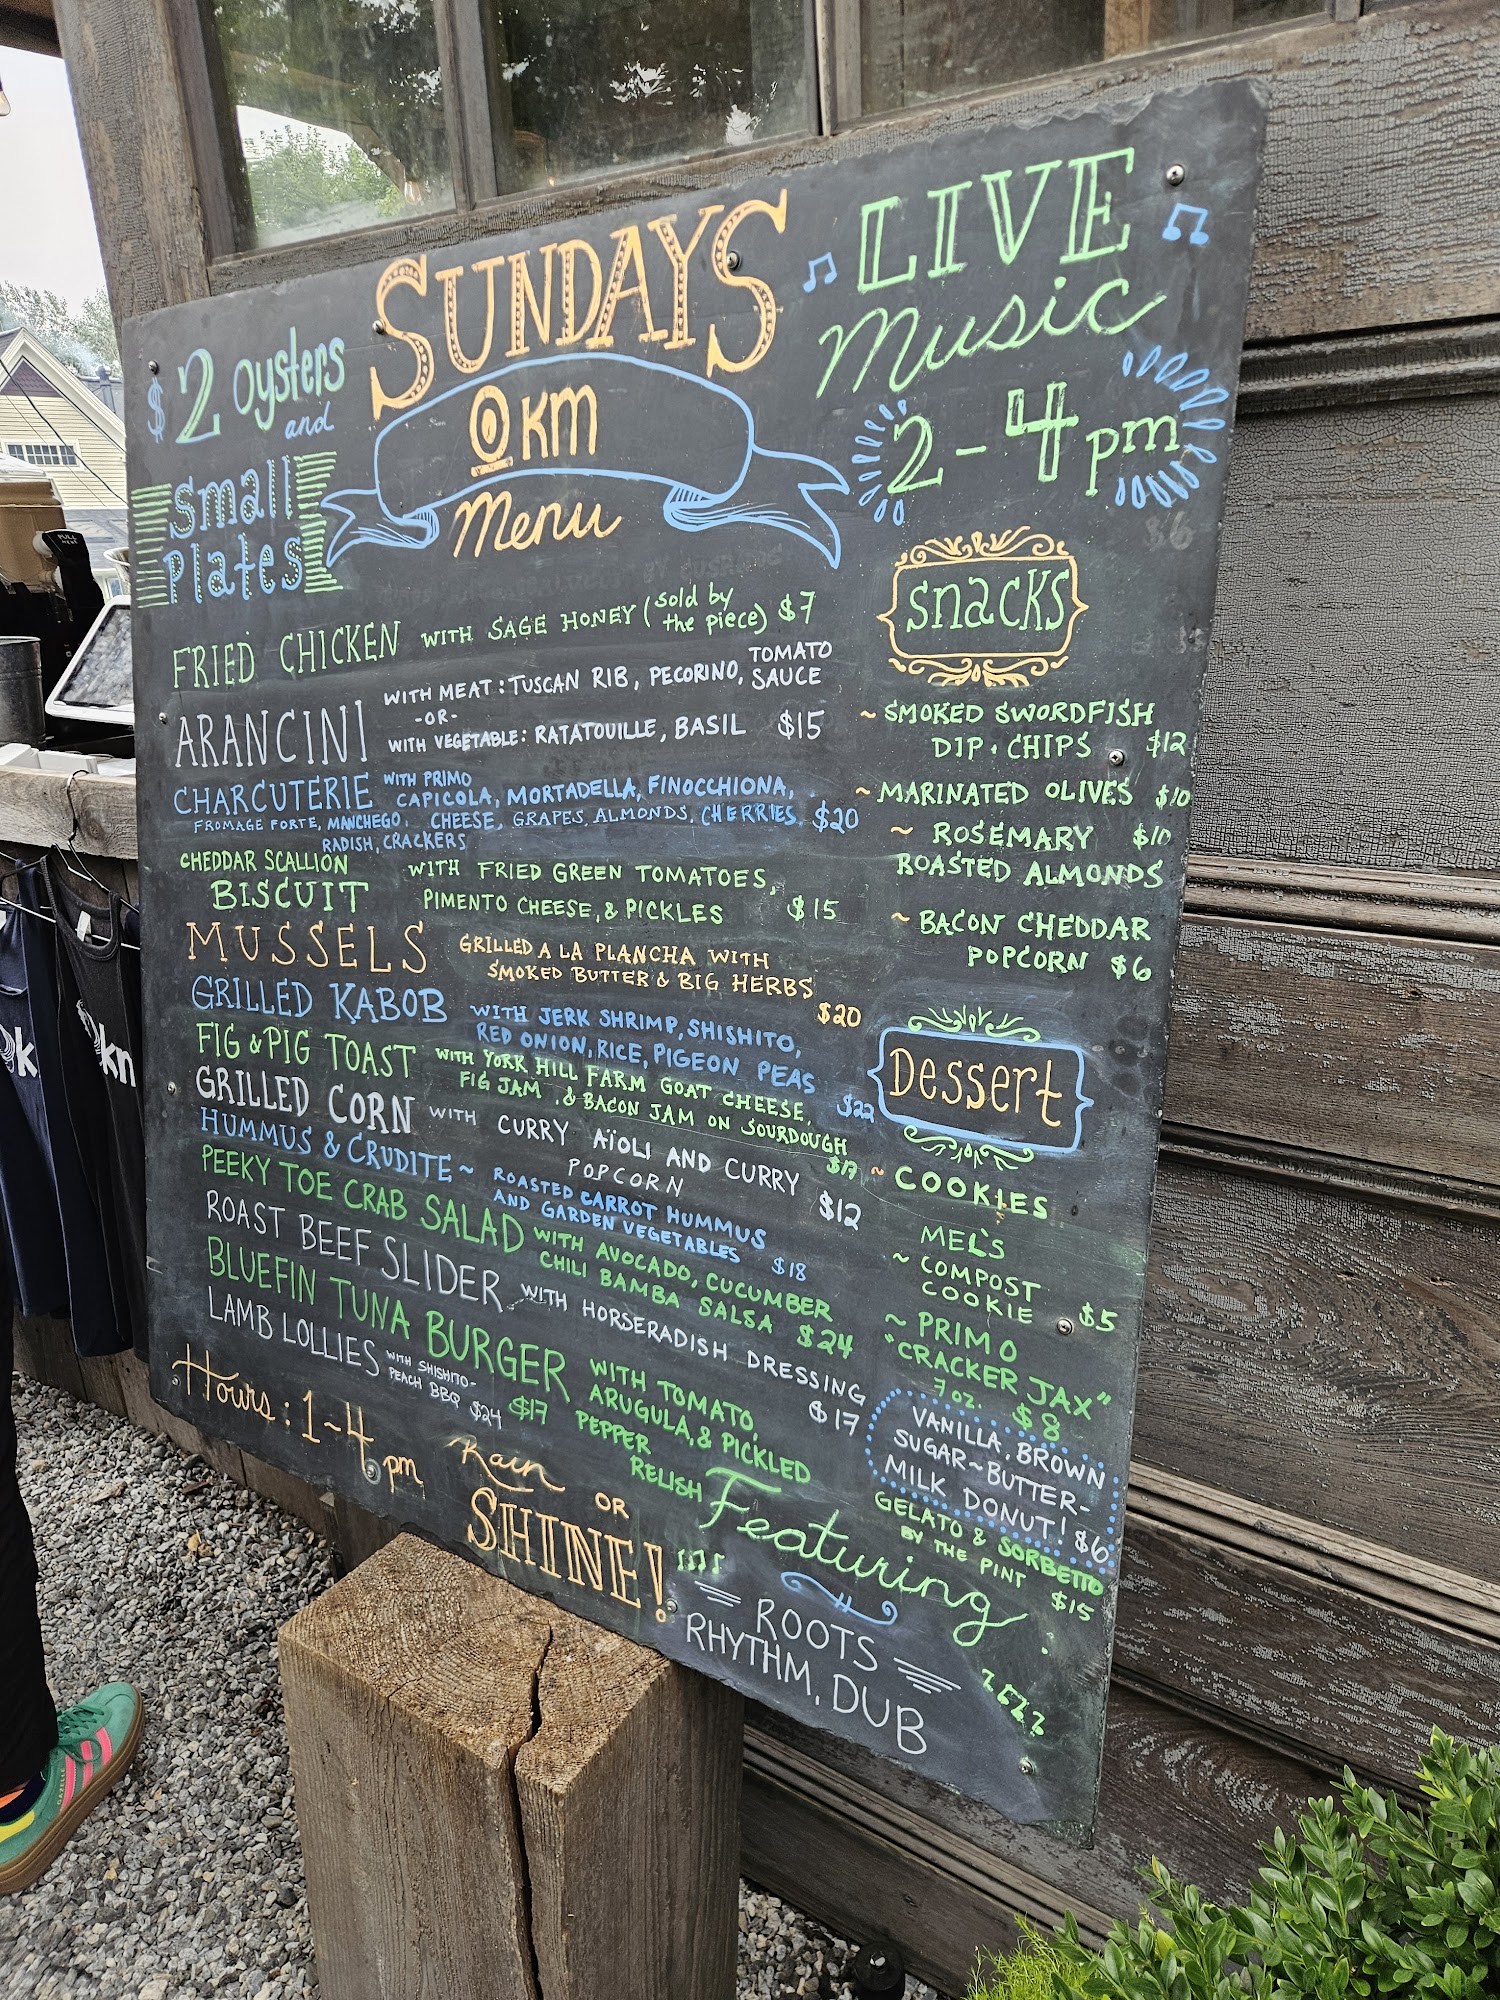 SUNDAYS
0KM
Menu
$2 oysters
and
Small
Plates
LIVE
Music
2-4pm
FRIED CHICKEN WITH SAGE HONEY (sold by the piece) $7
ARANCINI WITH MEAT: TUSCAN RIB, PECORINO, TOMATO SAUCE
-OR-
WITH VEGETABLE: RATATOUILLE, BASIL $15
CHARCUTERIE WITH PRIMO
CAPICOLA, MORTADELLA, FINOCCHIONA,
FROMAGE FORTE, MANCHEGO, CHEESE, GRAPES, ALMONDS, CHERRIES, $20
RADISH, CRACKERS
CHEDDAR SCALLION
BISCUIT WITH FRIED GREEN TOMATOES,
PIMENTO CHEESE, & PICKLES $15
MUSSELS GRILLED A LA PLANCHA WITH
SMOKED BUTTER & BIG HERBS
$20
GRILLED KABOB WITH JERK SHRIMP, SHISHITO,
RED ONION, RICE, PIGEON PEAS
$22
FIG & PIG TOAST WITH YORK HILL FARM GOAT CHEESE,
FIG JAM, & BACON JAM ON SOURDOUGH
GRILLED CORN WITH CURRY AÏOLI AND CURRY
POPCORN $12
HUMMUS & CRUDITE ~ ROASTED CARROT HUMMUS
AND GARDEN VEGETABLES $18
PEEKY TOE CRAB SALAD WITH AVOCADO, CUCUMBER
CHILI BAMBA SALSA $24
ROAST BEEF SLIDER WITH HORSERADISH DRESSING
$17
BLUEFIN TUNA BURGER WITH TOMATO,
ARUGULA, & PICKLED
PEPPER
RELISH
$17
LAMB LOLLIES WITH SHISHITO-
PEACH BBQ $24
Hours: 1-4 pm
Rain OR
SHINE!
snacks
~ SMOKED SWORDFISH
DIP + CHIPS $12
~ MARINATED OLIVES $10
~ ROSEMARY $10
ROASTED ALMONDS
~ BACON CHEDDAR
POPCORN $6
Dessert
~ COOKIES
MEL'S
~ COMPOST
COOKIE $5
~ PRIMO
"CRACKER JAX"
7 oz. $8
VANILLA, BROWN
SUGAR~BUTTER-
MILK DONUT! $6
GELATO & SORBETTO
BY THE PINT $15
Featuring
ROOTS
RHYTHM, DUB